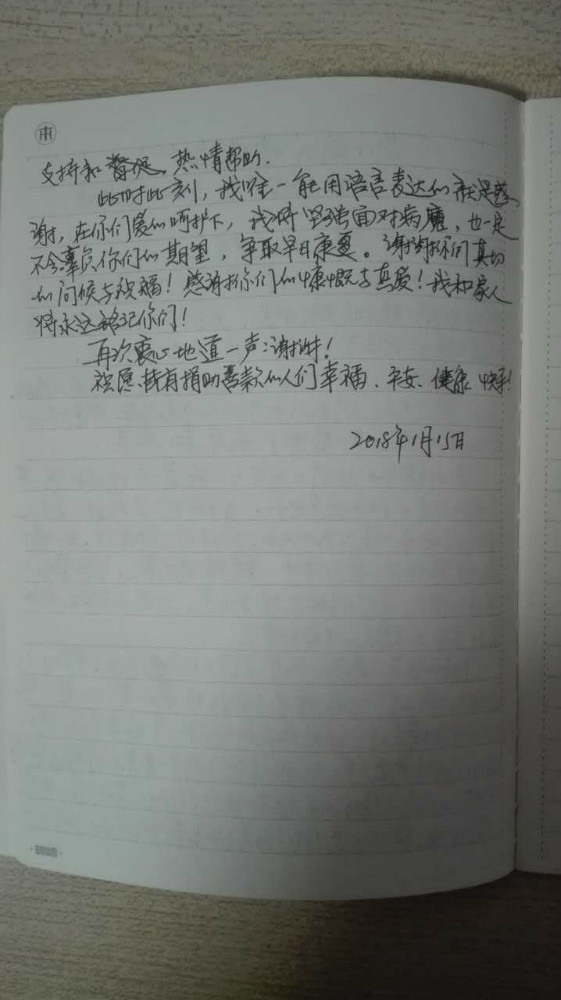 支持和督促、热情帮助.
此时此刻,我唯一能用语言表达的就是感
谢,在你们爱的呵护下,我会坚强面对病魔,也一定
不会辜负你们的期望,争取早日康复。谢谢你们真切
的问候与祝福!感谢你们的慷慨与真爱!我和家人
将永远铭记你们!
再次衷心地道一声:谢谢!
祝愿所有捐助善款的人们幸福、平安、健康、快乐!
2018年1月15日